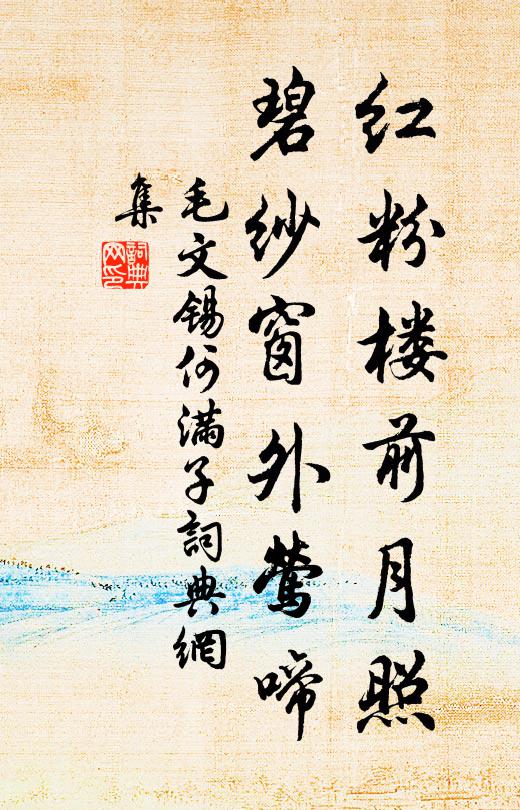 红粉楼前月照
碧纱窗外莺啼
毛文锡何满子詞典網
集
詞典網印